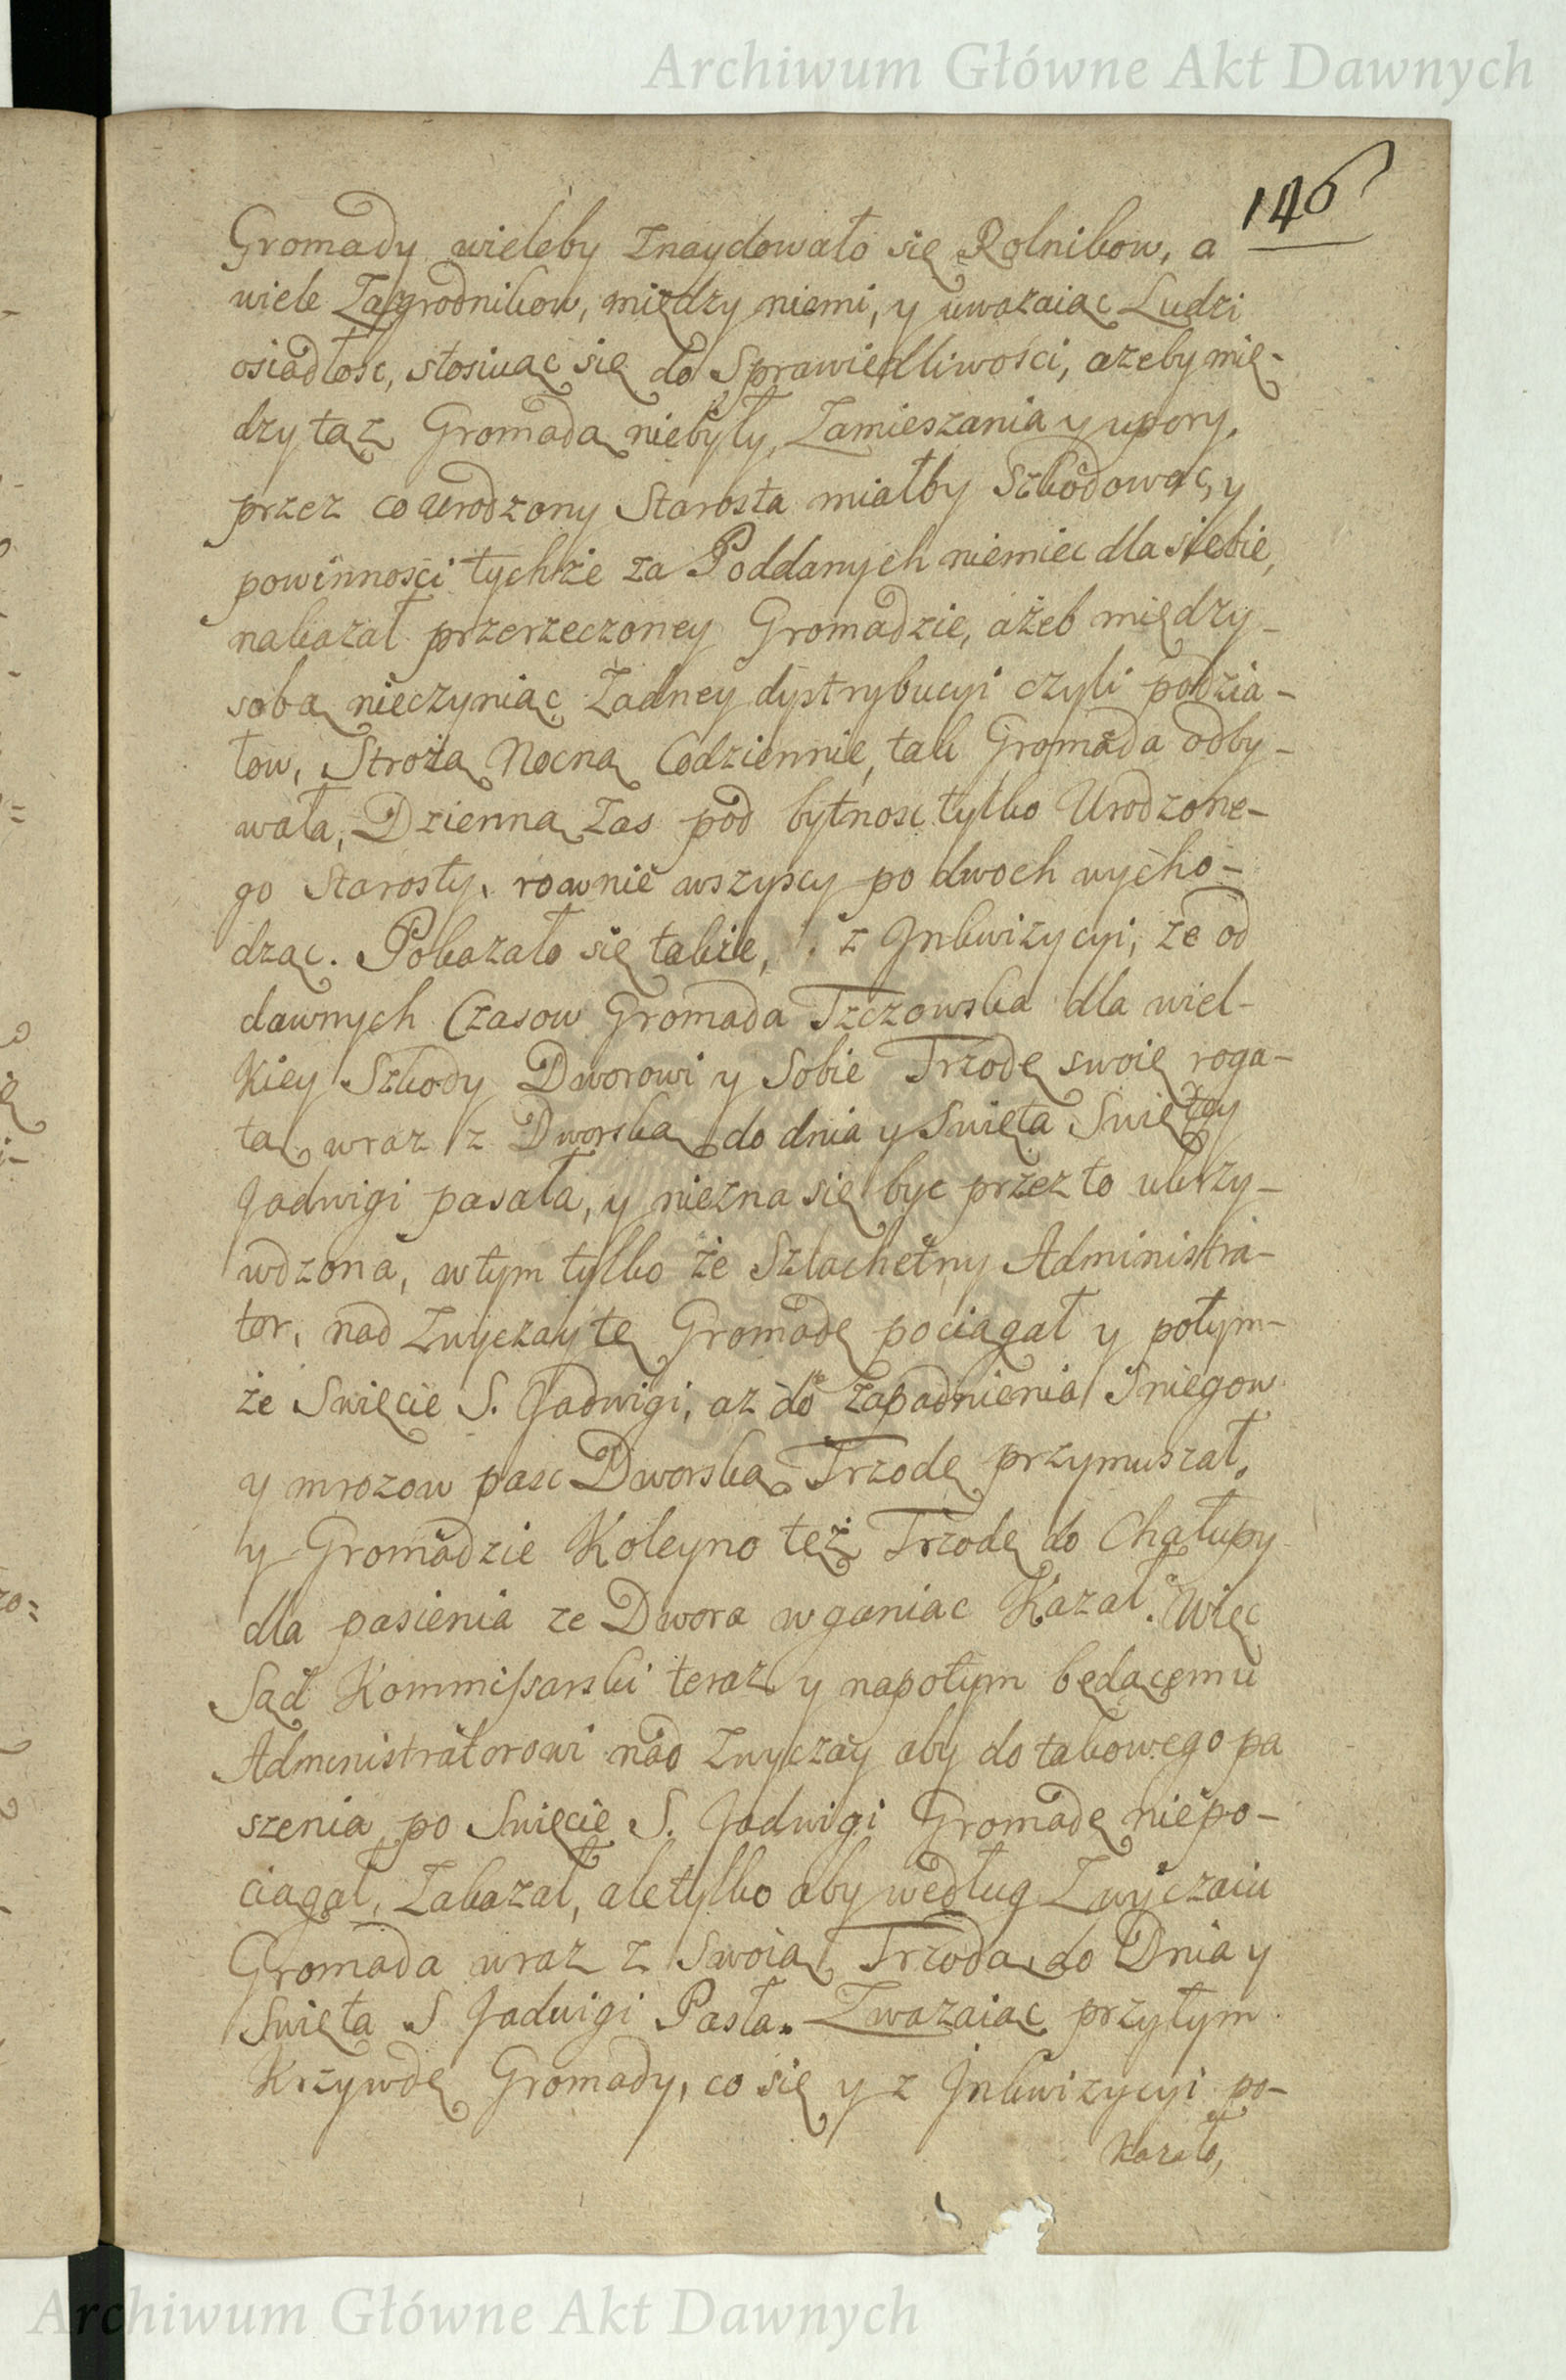 Archiwum Główne Akt Dawnych
146
Gromady wieleby Znaydowało się Rolnikow, a
wiele Zagrodnikow, między niemi, y uwazaiąc Ludzi
osiadłosc, stosuiąc się do Sprawiedliwości, azeby mię-
dzy tąz Gromadą niebyły, Zamieszania y upory,
przez co Urodzony Starosta miałby Szkodowac, y
powinności tychże za Poddanych niemiec dla siebie,
nakazał przerzeczoney Gromadzie, ażeb między
sobą nieczyniąc Żadney dystrybucyi czyli podzia-
łow, Strożą Nocną Codziennie, tak Gromada odby-
wała, Dzienną Zas pod bytnosc tylko Urodzone-
go Starosty, rownie wszyscy po dwoch wycho-
dząc. Pokazało się także, z Inkwizycyi, że od
dawnych Czasow Gromada Tzczowska dla wiel-
Kiey Szkody Dworowi y Sobie Trzodę swoię roga-
tą wraz z Dworską do dnia y Swięta Swiętey
Jadwigi pasała, y niezna się byc przez to ukrzy-
wdzona, w tym tylko że Szlachetny Administra-
tor, nad Zwyczay tę Gromadę pociągał y potym-
że Swięcie S. Jadwigi, az do zapadnienia Sniegow
y mrozow pasc Dworską Trzodę przymuszał,
y Gromadzie Koleyno też Trzodę do Chałupy
dla pasienia ze Dwora wganiac Kazał. Więc
Sąd Kommissarski teraz y napotym będącemu
Administratorowi nad Zwyczay aby do takowego pa
szenia po Swięcie S. Jadwigi Gromadę niepo-
ciągał, Zakazał, ale tylko aby według Zwyczaiu
Gromada wraz z Swoią Trzodą do Dnia y
Swięta S Jadwigi Pasła. Zwazaiąc przytym
Krzywdę Gromady, co się y z Inkwizycyi po-
kazało,
Archiwum Główne Akt Dawnych